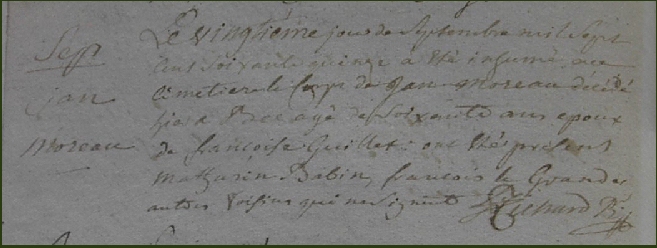 Sepr
Jan
Moreau
Le vingtiéme jour de Septembre mil Sept
Cent Soixante quinze a été inhumé, au
Cimetiere le Corps de Jan Moreau décédé
hier a agé de Soixante ans epoux
de francoise Guillet. ont étés présent
Mathurin Babin, francois le Grand et
autres Voisins qui ne Signent